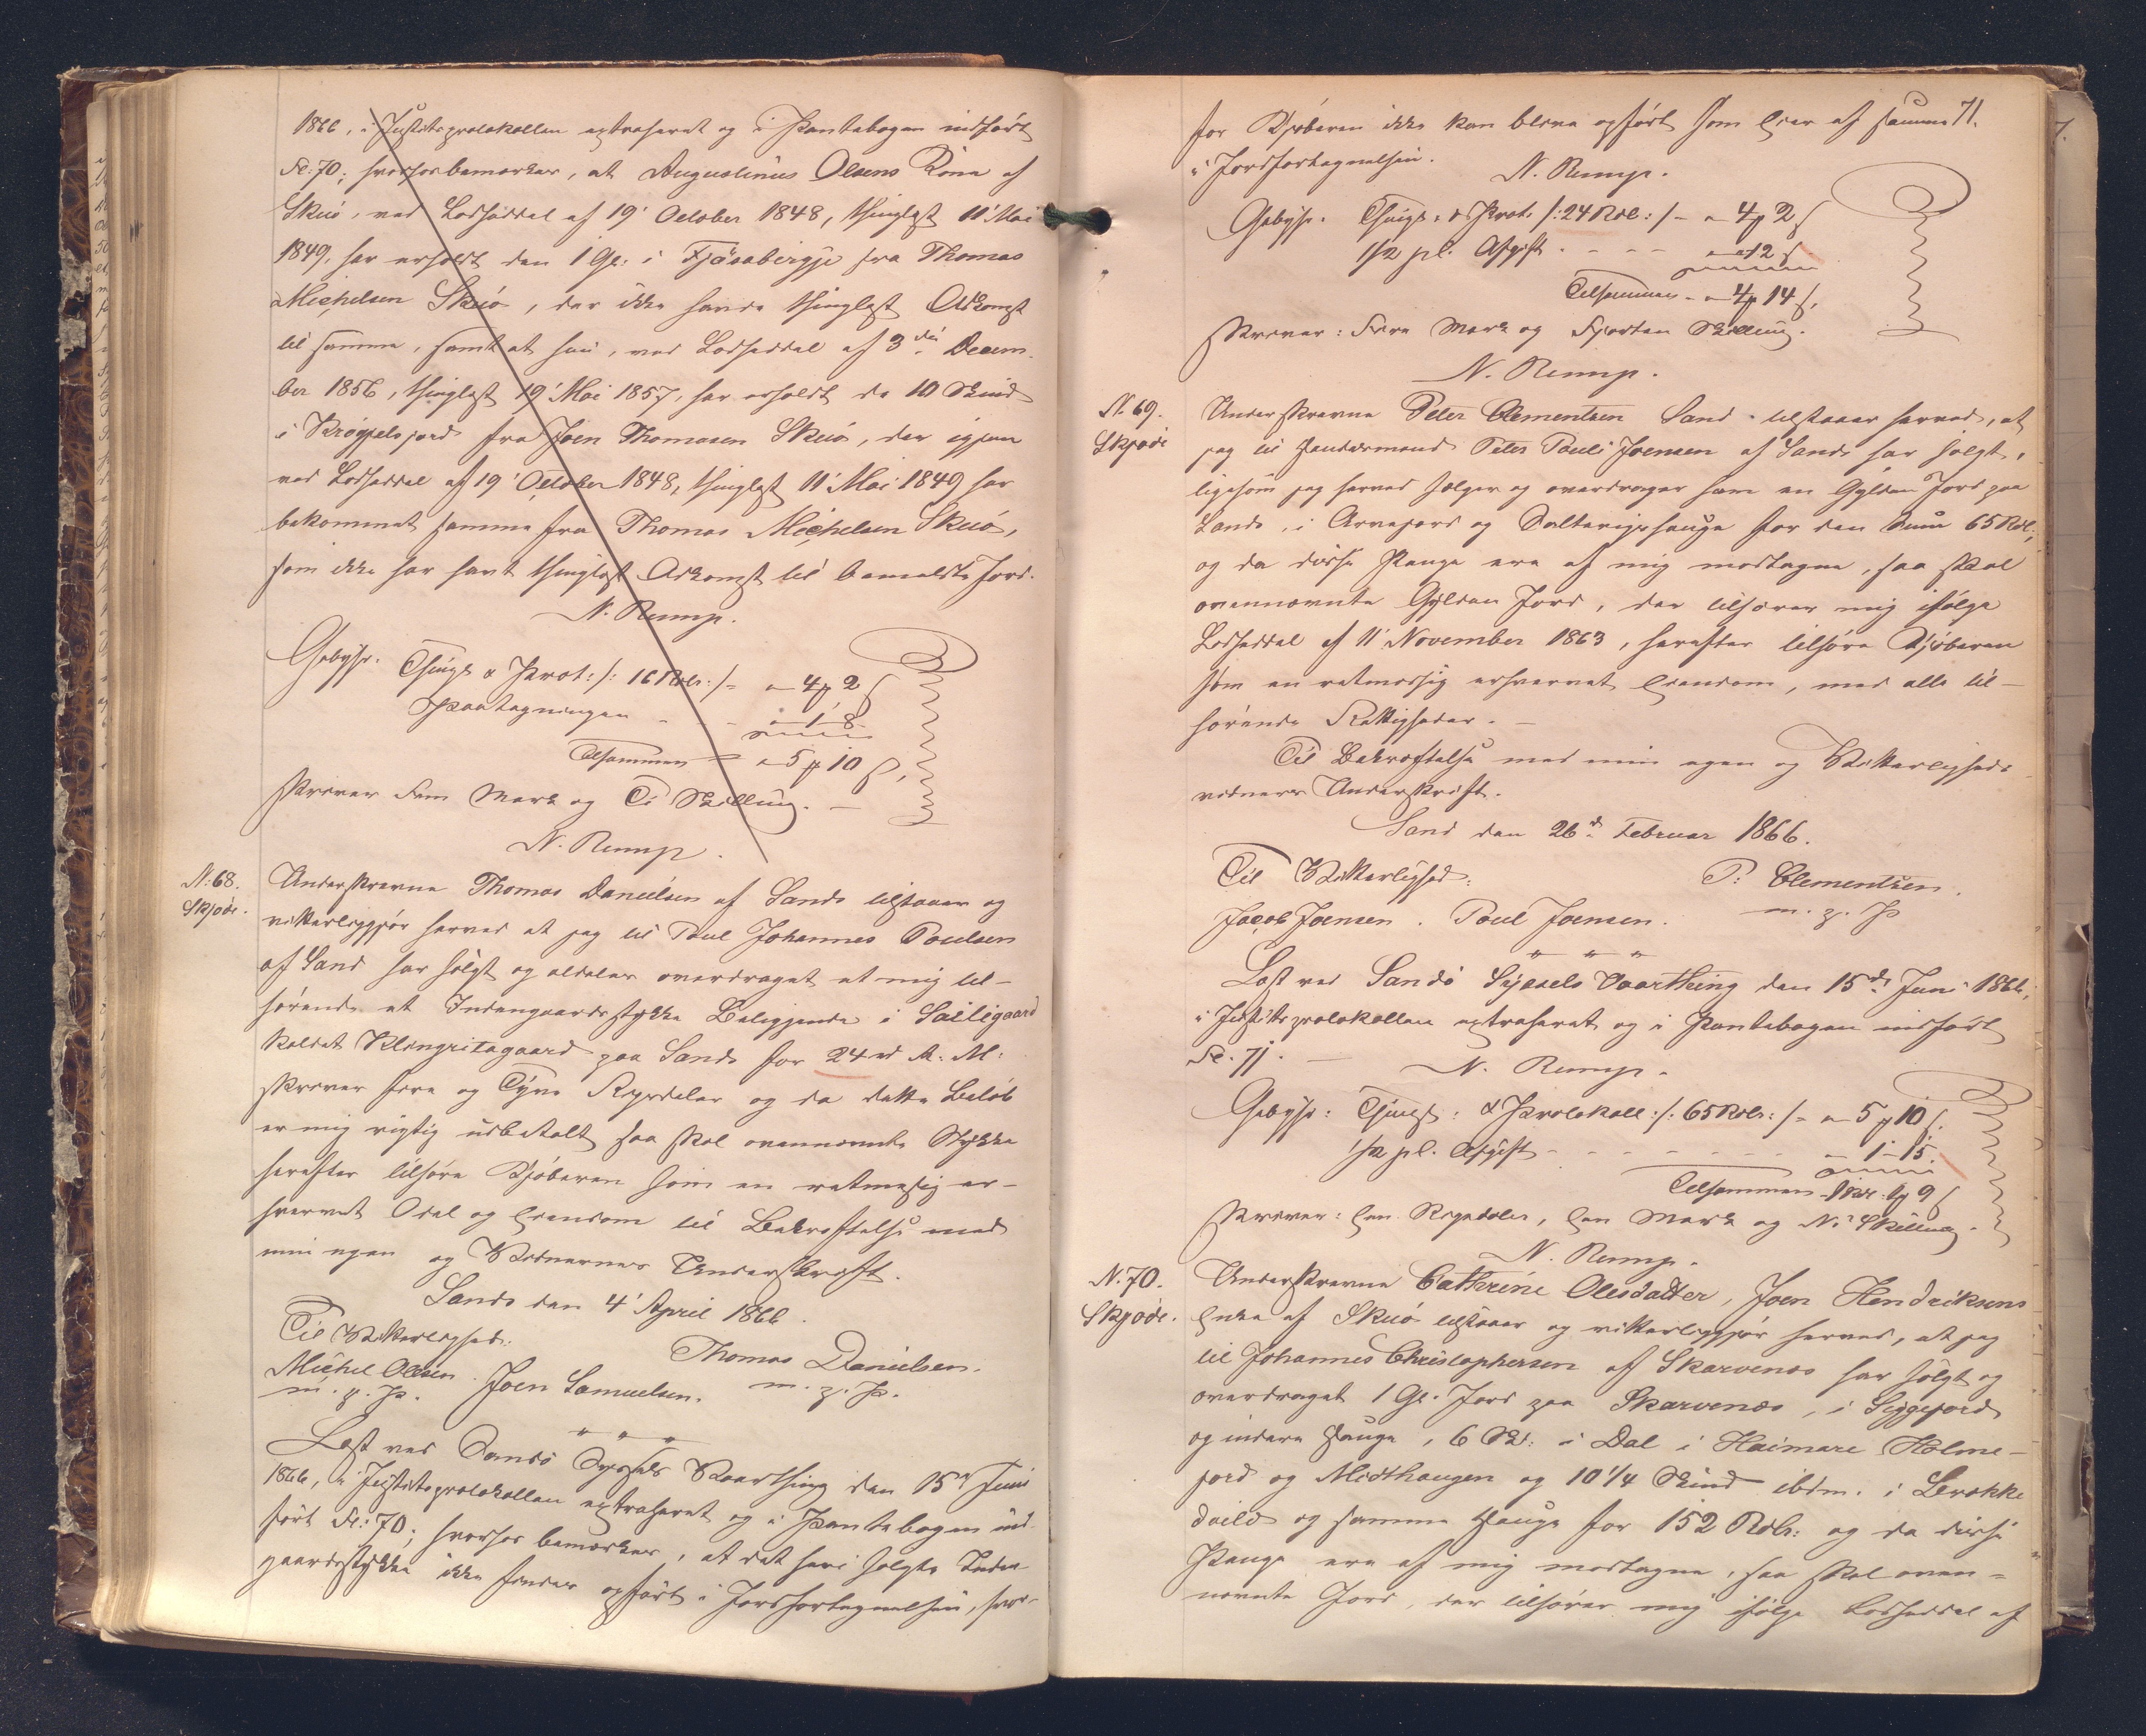 1866, i Justitsprotokollen extraheret og i Pantebogen indført
Fl: 70; hvorfor bemærkes, at Augustinus Olsens Kone af
Skuö, ved Lodseddel af 19' October 1848, thinglæst 11' Mai
1849, har erholdt den 1 Gl: i Fjösabirgje fra Thomas
Michelsen Skuö, der ikke havde thinglæst Adkomst
til samme, samt at hun, ved Lodseddel af 3die Decem-
ber 1856, thinglæst 19' Mai 1857, har erholdt de 10 Skind
i fra Joen Thomasen Skuö, der igjen
ved Lodseddel af 19' October 1848, thinglæst 11' Mai 1849 har
bekommet samme fra Thomas Michelsen Skuö,
som ikke har havt thinglæst Adkomst til bemeldte Jord.
N. Rump.
Gebyhr. Thingl & Prot: /: 16 Rdlr: /= " 4 ₻ 2 ß
Paategningen - - - " 1 - 8 -
Tilsammen = " 5 ₻ 10 ß,
skriver Fem Mark og Ti Skilling. —
N. Rump.
N: 68.
Skjøde.
Underskrevne Thomas Danielsen af Sand tilstaaer og
vitterliggjör herved at jeg til Poul Johannes Poulsen
af Sand har solgt og aldeles overdraget et mig til-
hørende et Indengaardsstykke Beliggende i Sailigaard
kaldet Klingritagaard paa Sand for 24 rd R: M:
skriver fire og Tyve Rigsdaler og da dette Beløb
er mig rigtig udbetalt saa skal ovennævnte Stykke
herefter tilhøre Kjøberen som en retmæsig er-
hvervet Odel og Eiendom til Bekræftelse med
min egen og Vidnernes Underskrift.
Sand den 4' April 1866.
Til Vitterlighed:
Thomas Danielsen.
Michel Olsen. Joen Samuelsen. m. p. P.
m. p. P.
" " "
Læst ved Sandö Syssels Vaarthing den 15d Juni
1866, i Justitsprotokollen extraheret og i Pantebogen ind-
ført Fl: 70; hvorfor bemærkes, at det heri solgte Inden-
gaardsstykke ikke findes opført i Jordfortegnelsen, hvor-
71.
for Kjøberen ikke kan blive opført som Eier af samme
i Jordfortegnelsen.
N. Rump.
Gebyhr. Thingl. & Prot. /: 24 Rdl: /- " 4 ₻ 2 ß
1/2 pCt. Afgift - - - - " " 12 ß
Tilsammen - " 4 ₻ 14 ß,
skriver: Fire Mark og Fjorten Skilling.
N. Rump.
N. 69.
Skjøde
Underskrevne Peter Clementsen Sand tilstaaer herved, at
jeg til Peter Pauli Joensen af Sand har solgt,
ligesom jeg herved sælger og overdrager ham en Gylden Jord paa
Sand, i og for den Sum 65 Rdl;
og da disse Penge ere af mig modtagne, saa skal
ovennævnte Gylden Jord, der tilhører mig ifølge
Lodseddel af 11' November 1863, herefter tilhøre Kjøberen
som en retmæssig erhvervet Eiendom, med alle til-
hørende Rettigheder. —
Til Bekræftelse med min egen og Vitterligheds
vidners Underskrift.
Sand den 26d Februar 1866.
Til Vitterlighed:
P: Clementsen.
Jacob Joensen. Poul Joensen. m. p. P
" " "
Læst ved Sandö Syssels Vaarthing den 15de Juni 1866,
i Justitsprotokollen extraheret og i Pantebogen indført
Fl. 71. —
N. Rump.
Gebyhr: Thingl: & Protokoll: /: 65 Rdlr: /= " 5 ₻ 10 ß.
1/2 pCt. Afgift - - - - - - " 1 - 15.
Tilsammen 1 Rdl: 1 ₻ 9 ß
skriver: Een Rigsdaler, Een Mark og Ni Skilling.
N. Rump.
N. 70.
Skjøde.
Underskrevne Cathrine Olesdatter, Joen Hendriksens
Enke af Skuö tilstaaer og vitterliggjør herved, at jeg
til Johannes Christophersen af Skarvenæs har solgt og
overdraget 1 Gl. Jord paa Skarvenæs, i Leggejord
og indere Hauge, 6 Sk: i Dal i Haimare Holme-
jord og Midthaugen og 10 1/4 Skind ibdm. i Brekke
deild og samme Hauge for 152 Rdlr: og da disse
Penge ere af mig modtagne, saa skal oven-
nævnte Jord, der tilhører mig ifølge Lodseddel af